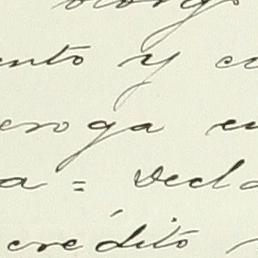 ento y cu
eroga en
a = decla
crédito